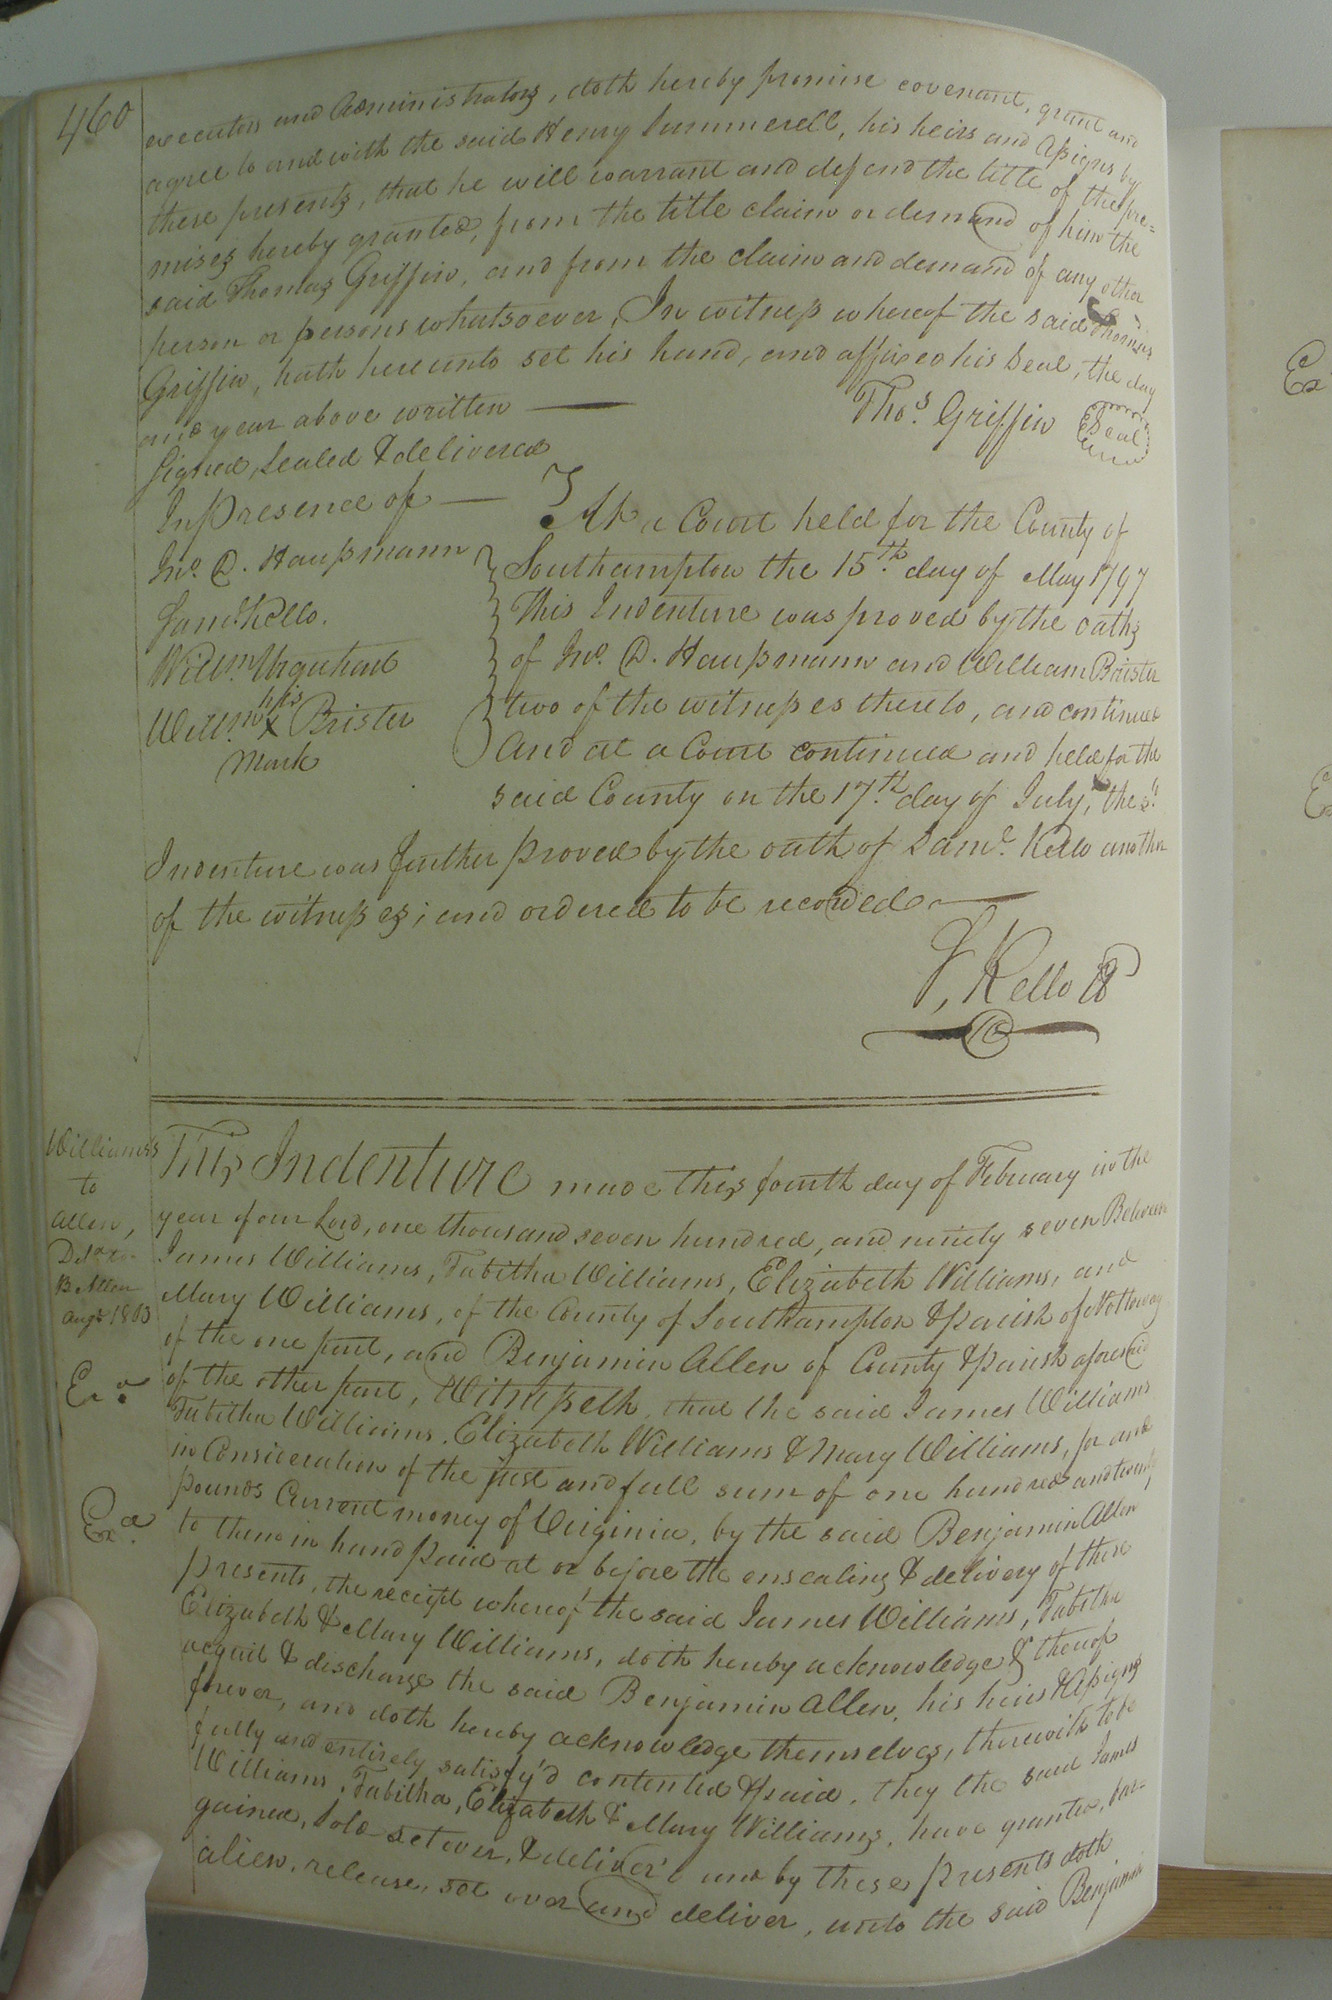 460
executors and Administrators, doth hereby promise covenant, grant and
agree to and with the said Henry Summerell, his heirs and Assigns by
these presents, that he will warrant and defend the title of the pre=
mises hereby granted, from the title claim or demand of him the
said Thomas Griffin, and from the claim and demand of any other
person or persons whatsoever, In witness whereof the said Thomas
Griffin, hath hereunto set his hand, and affixed his Seal, the day
and year above written
Thos. Griffin Seal
Signed, Sealed & delivered
In presence of
Jno. D. Haussmann
Saml. Kello.
Willm. Urquhart
Willm. his X Brister
Mark
At a Court held for the County of
Southampton the 15th. day of May 1797
This Indenture was proved by the oaths
of Jno. D. Haussmann and William Brister
two of the witnesses thereto, and continued
And at a Court continued and held for the
said County on the 17th. day of July, the sd.
Indenture was further proved by the oath of Saml. Kello another
of the witnesses; and ordered to be recorded
S, Kello
Williams's
to
Allen,
B. Allen
Augt 1803
Exd.
Exd.
This Indenture made this fourth day of February in the
year of our Lord, one thousand seven hundred, and ninety seven Between
James Williams, Tabitha Williams, Elizabeth Williams, and
Mary Williams, of the County of Southampton & parish of Nottoway
of the one part, and Benjamin Allen of County & parish aforesaid
of the other part, Witnesseth, that the said James Williams
Tabitha Williams, Elizabeth Williams & Mary Williams, for and
in Consideration of the just and full sum of one hundred and twenty
pounds Current money of Virginia, by the said Benjamin Allen
to them in hand paid at or before the ensealing & delivery of these
presents, the receipt whereof the said James Williams, Tabitha
Elizabeth & Mary Williams, doth hereby acknowledge & thereof
acquit & discharge the said Benjamin Allen, his heirs & Assigns
forever, and doth hereby acknowledge themselves, therewith to be
fully and entirely satisfy'd contented & paid, they the said James
Williams, Tabitha, Elizabeth & Mary Williams, have granted, bar=
gained, Sold set over, & deliver'd and by these presents doth
alien, release, set over and deliver, unto the said Benjamin